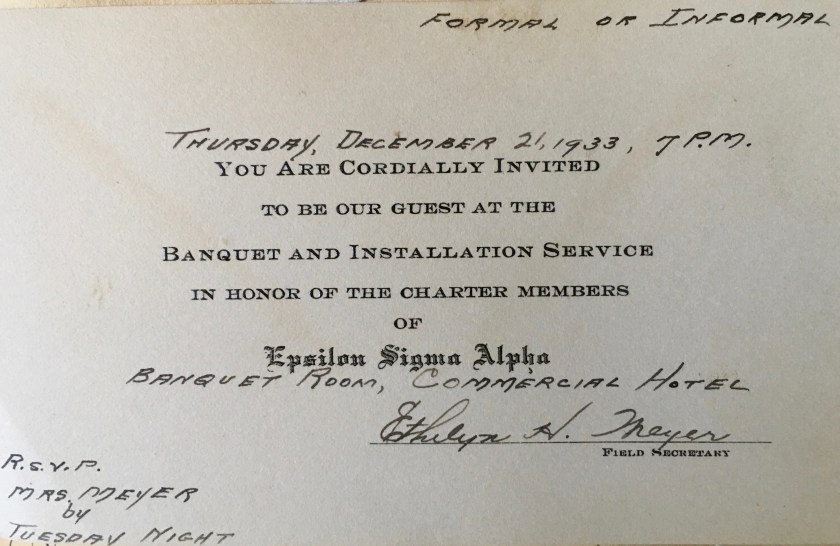 FORMAL OR INFORMAL
THURSDAY, DECEMBER 21, 1933, 7 P.M.
YOU ARE CORDIALLY INVITED
TO BE OUR GUEST AT THE
BANQUET AND INSTALLATION SERVICE
IN HONOR OF THE CHARTER MEMBERS
OF
Epsilon Sigma Alpha
BANQUET ROOM, COMMERCIAL HOTEL
Ethelyn H. Meyer
FIELD SECRETARY
R.S.V.P.
MRS. MEYER
by
TUESDAY NIGHT